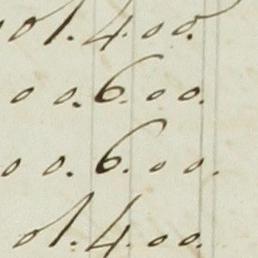 01.4.00.
00.6.00.
00.6.00.
01.4.00.